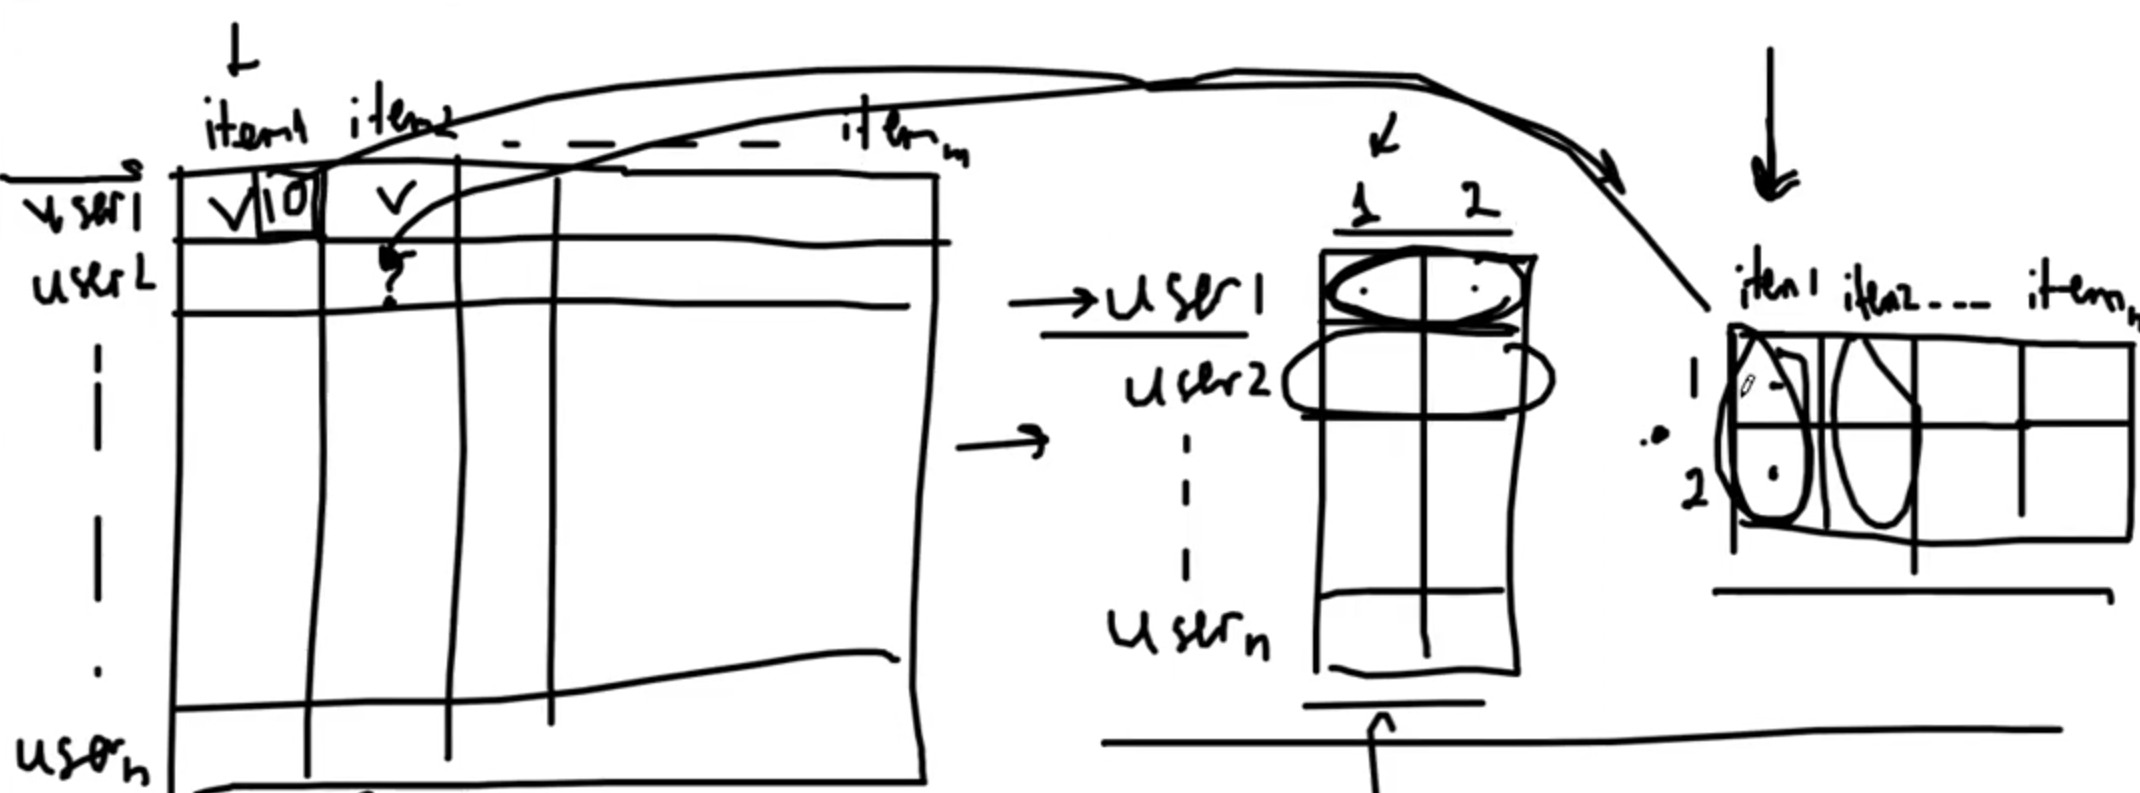 item1 item2 - - - - item m
user1 10
user2 ?
user n
1 2
user1
user2
user n
item1 item2 - - - item n
1
2